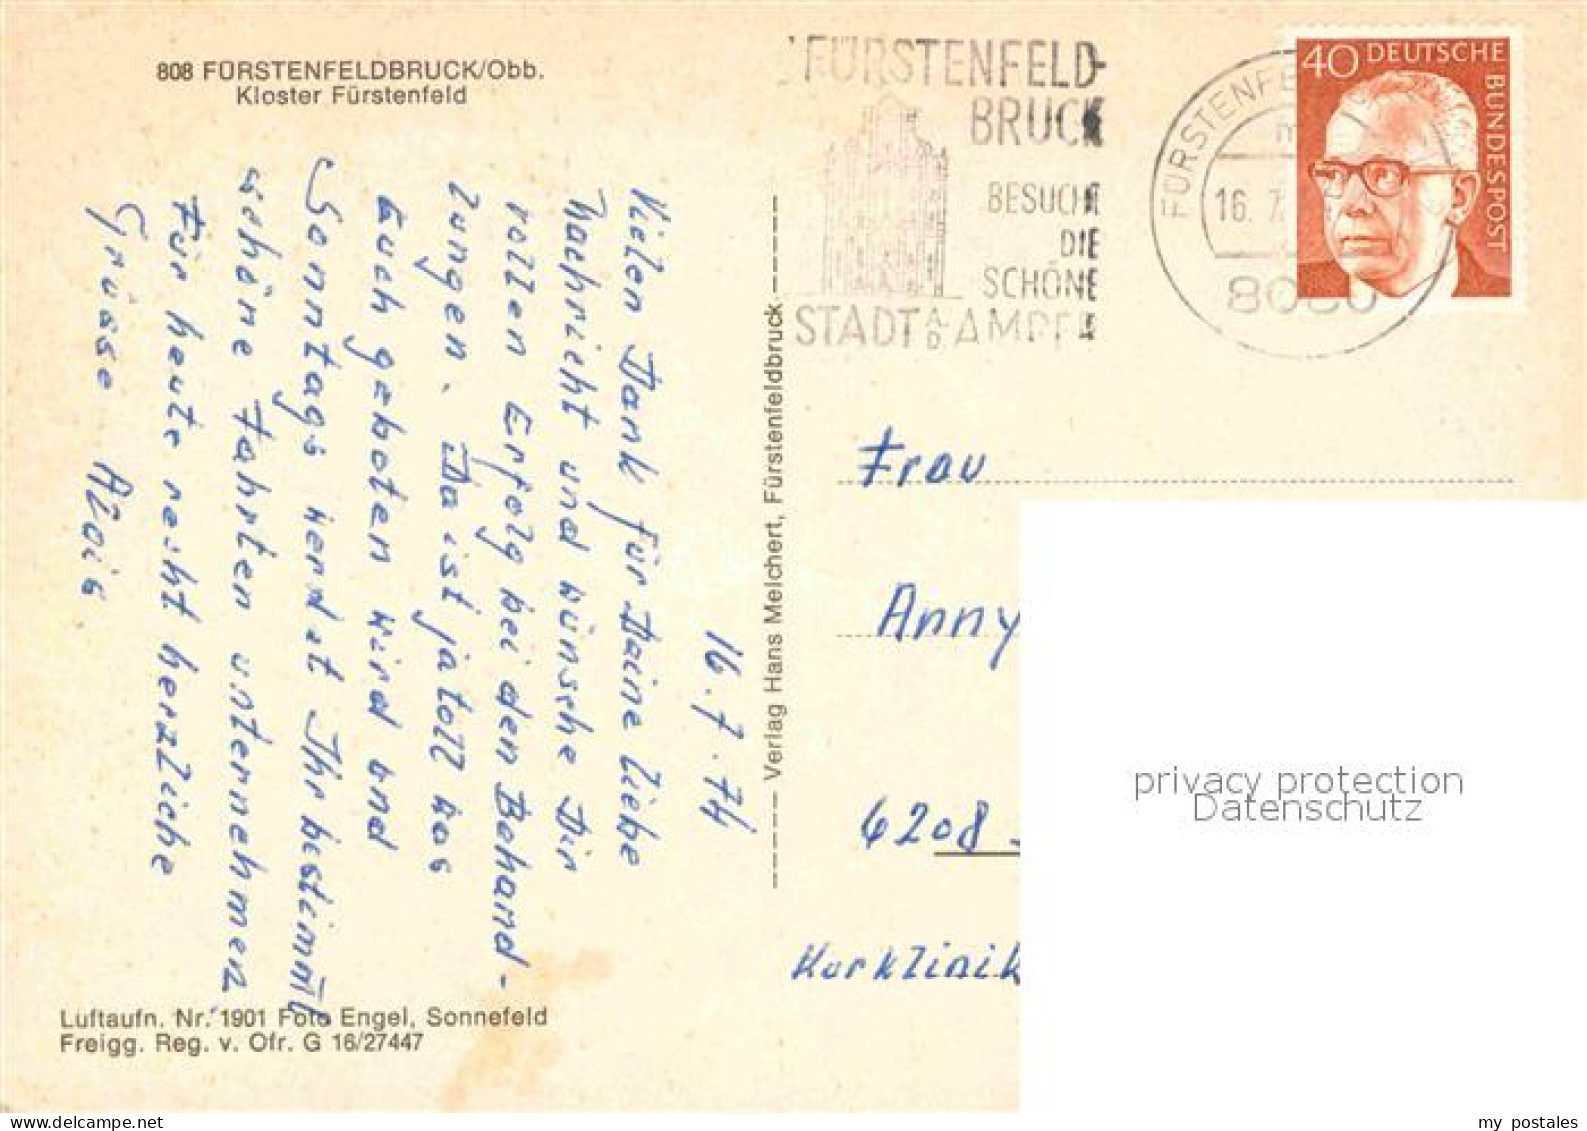 808 FÜRSTENFELDBRUCK/Obb.
Kloster Fürstenfeld
16.7.74
Vielen Dank für Deine liebe
Nachricht und wünsche Dir
vollen Erfolg bei den Behand-
lungen. Da ist ja toll was
Euch geboten wird und
Sonntags werdet Ihr bestimmt
schöne Fahrten unternehmen
Für heute recht herzliche
Grüsse Alois
Luftaufn. Nr. 1901 Foto Engel, Sonnefeld
Freigg. Reg. v. Ofr. G 16/27447
Verlag Hans Melchert, Fürstenfeldbruck
FÜRSTENFELD-
BRUCK
BESUCHT
DIE
SCHÖNE
STADT A.D. AMPER
FÜRSTENFE
16. 7.
8080
40 DEUTSCHE
BUNDESPOST
Frau
Anny
6208
Kurklinik
privacy protection
Datenschutz
my postales